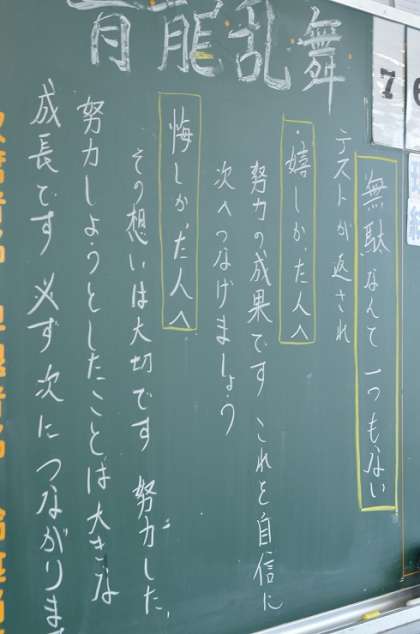 青龍乱舞
無駄なんて一つもない
テストが返され
・嬉しかった人へ
努力の成果です これを自信に
次へつなげましょう
・悔しかった人へ
その想いは大切です 努力した、
努力しようとしたことは大きな
成長です 必ず次につながります
7